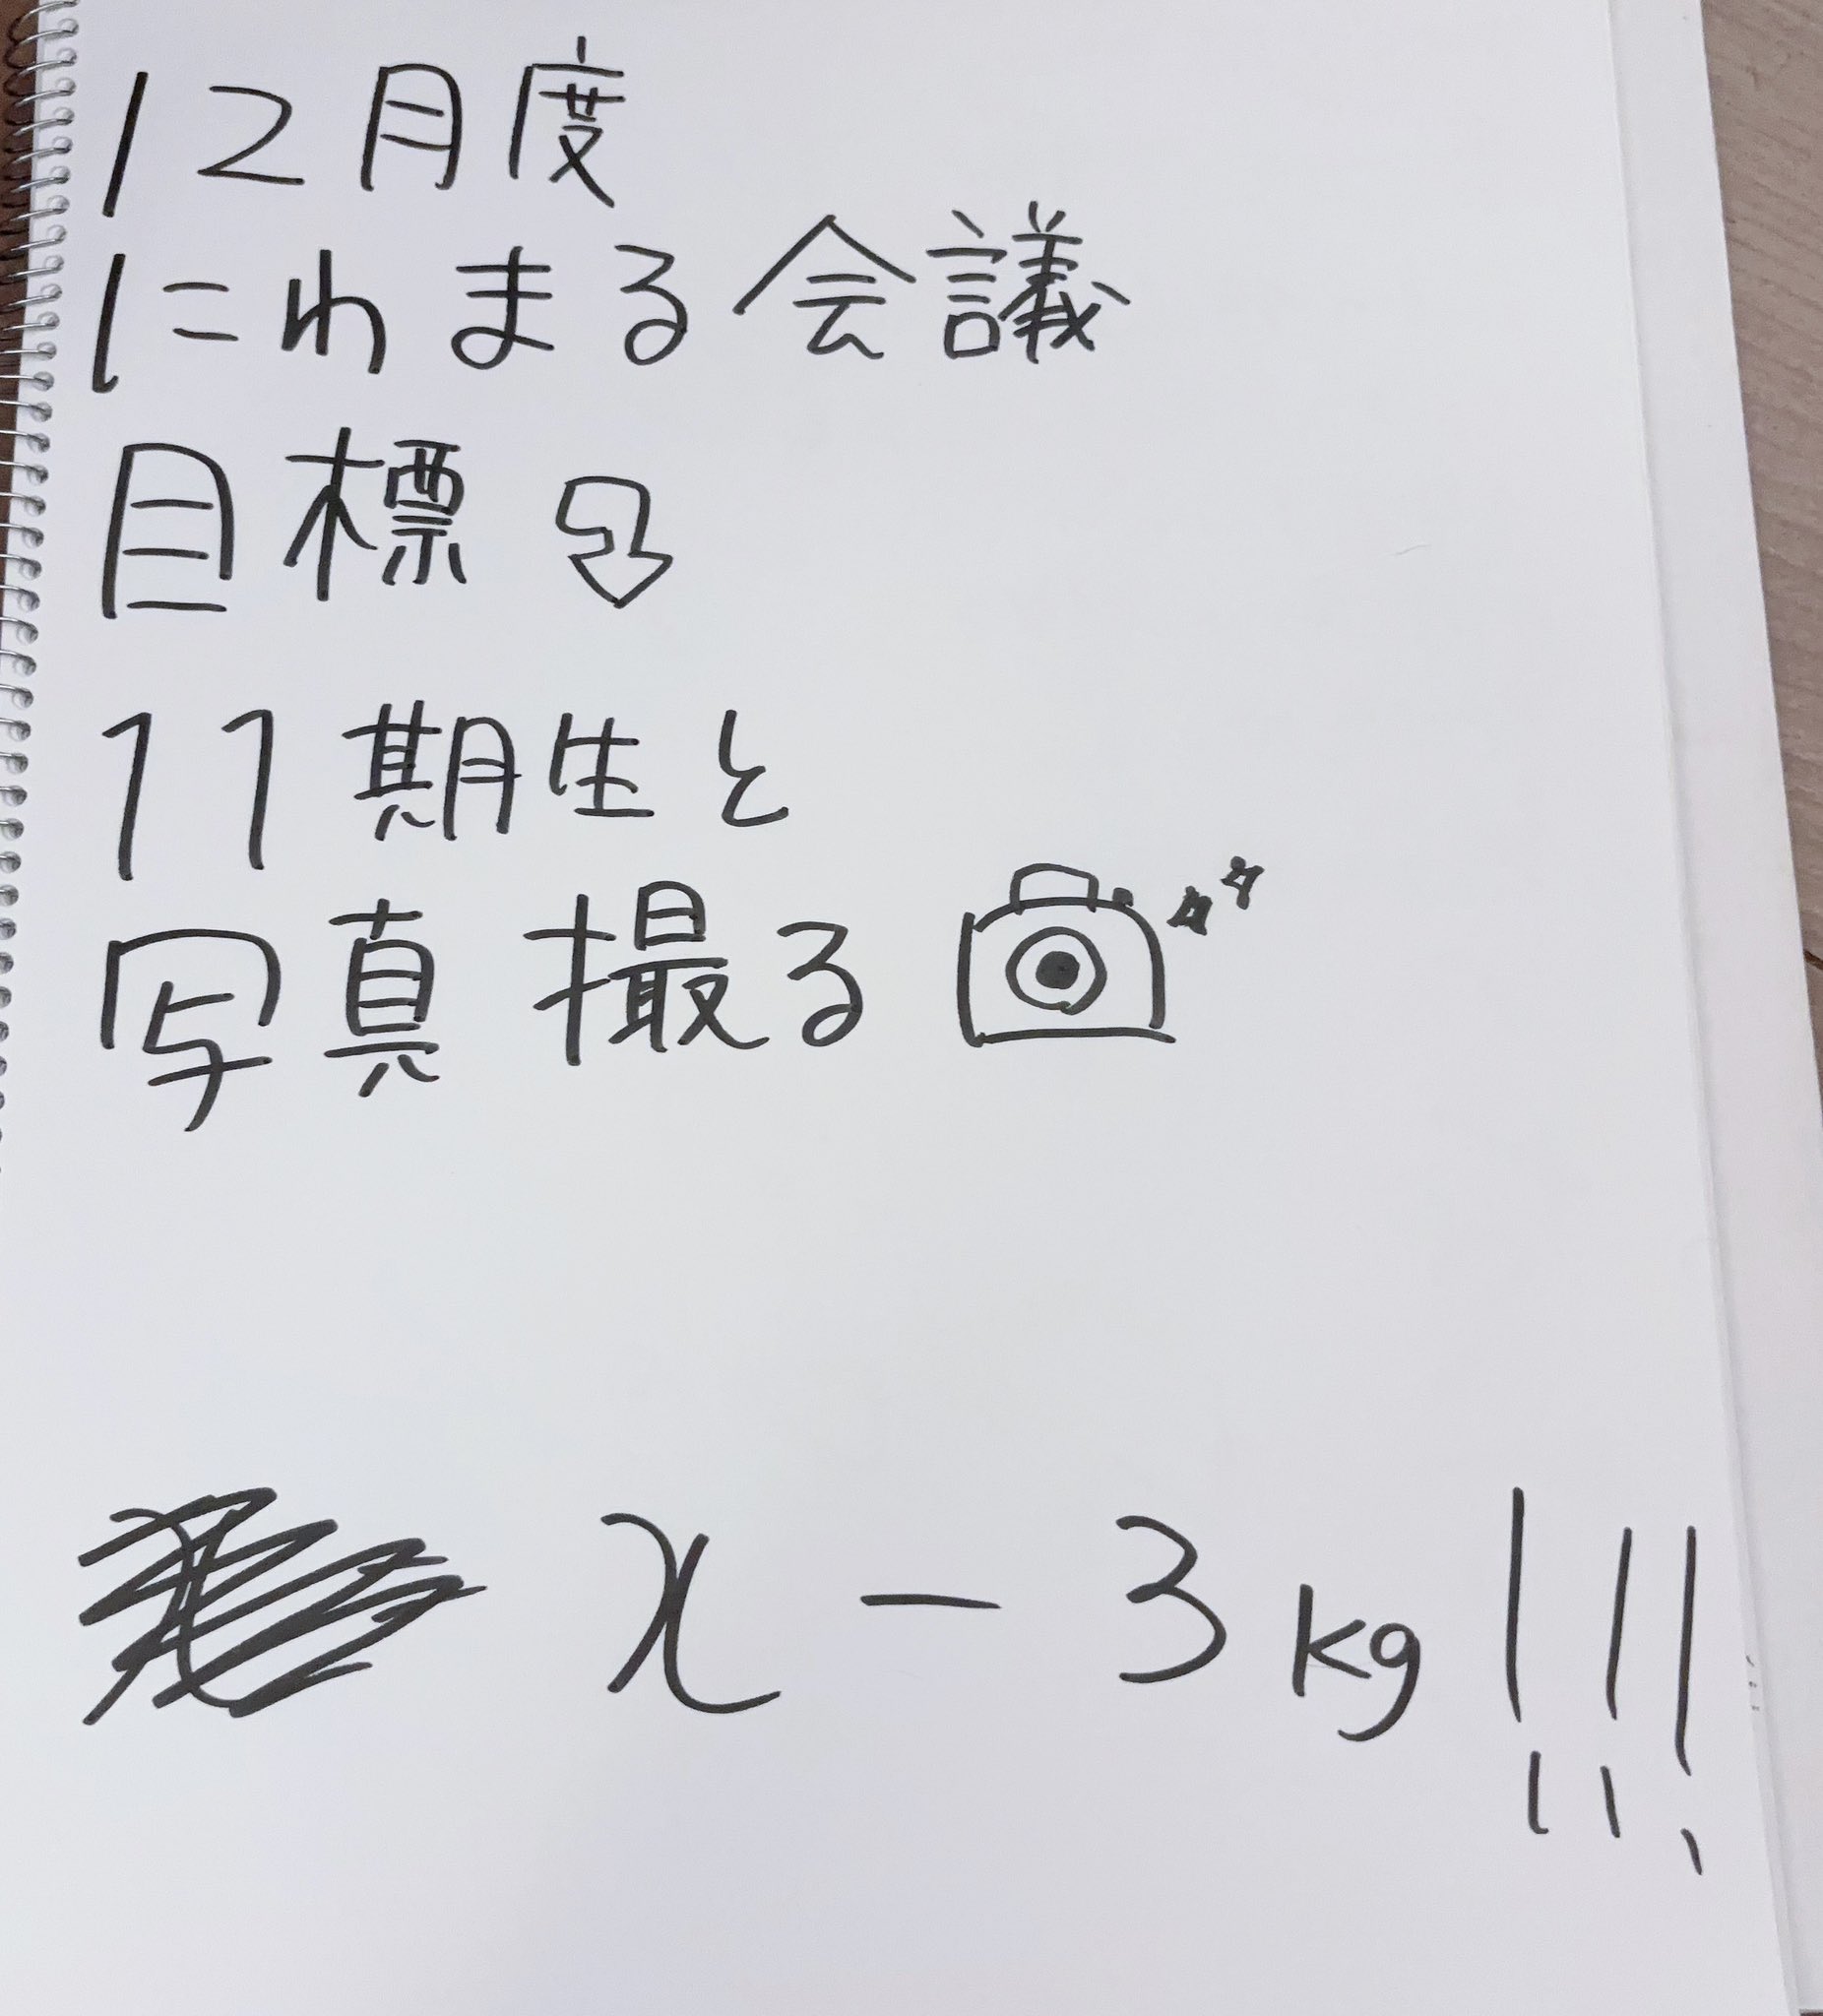 12月度
にわまる会議
目標
11期生と
写真撮る
x − 3kg!!!